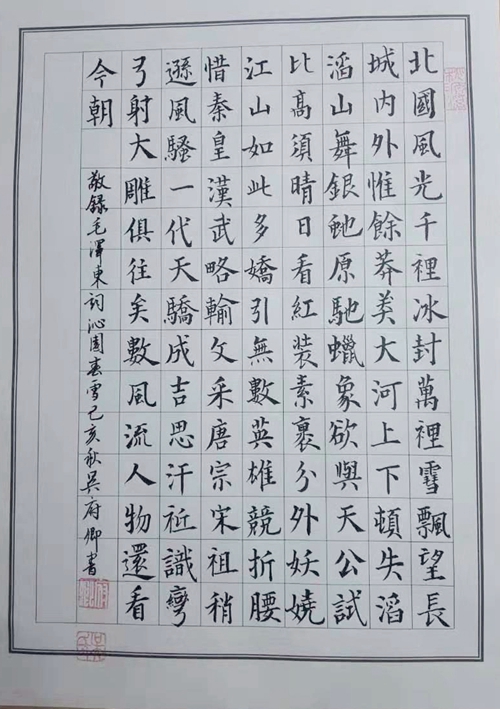 北國風光千裡冰封萬裡雪飄望長
城內外惟餘莽美大河上下頓失滔
滔山舞銀虵原馳蠟象欲與天公試
比高須晴日看紅裝素裹分外妖嬈
江山如此多嬌引無數英雄競折腰
惜秦皇漢武略輸文采唐宗宋祖稍
遜風騷一代天驕成吉思汗祗識彎
弓射大雕俱往矣數風流人物還看
今朝
敬録毛澤東詞沁園春雪己亥秋吳府卿書